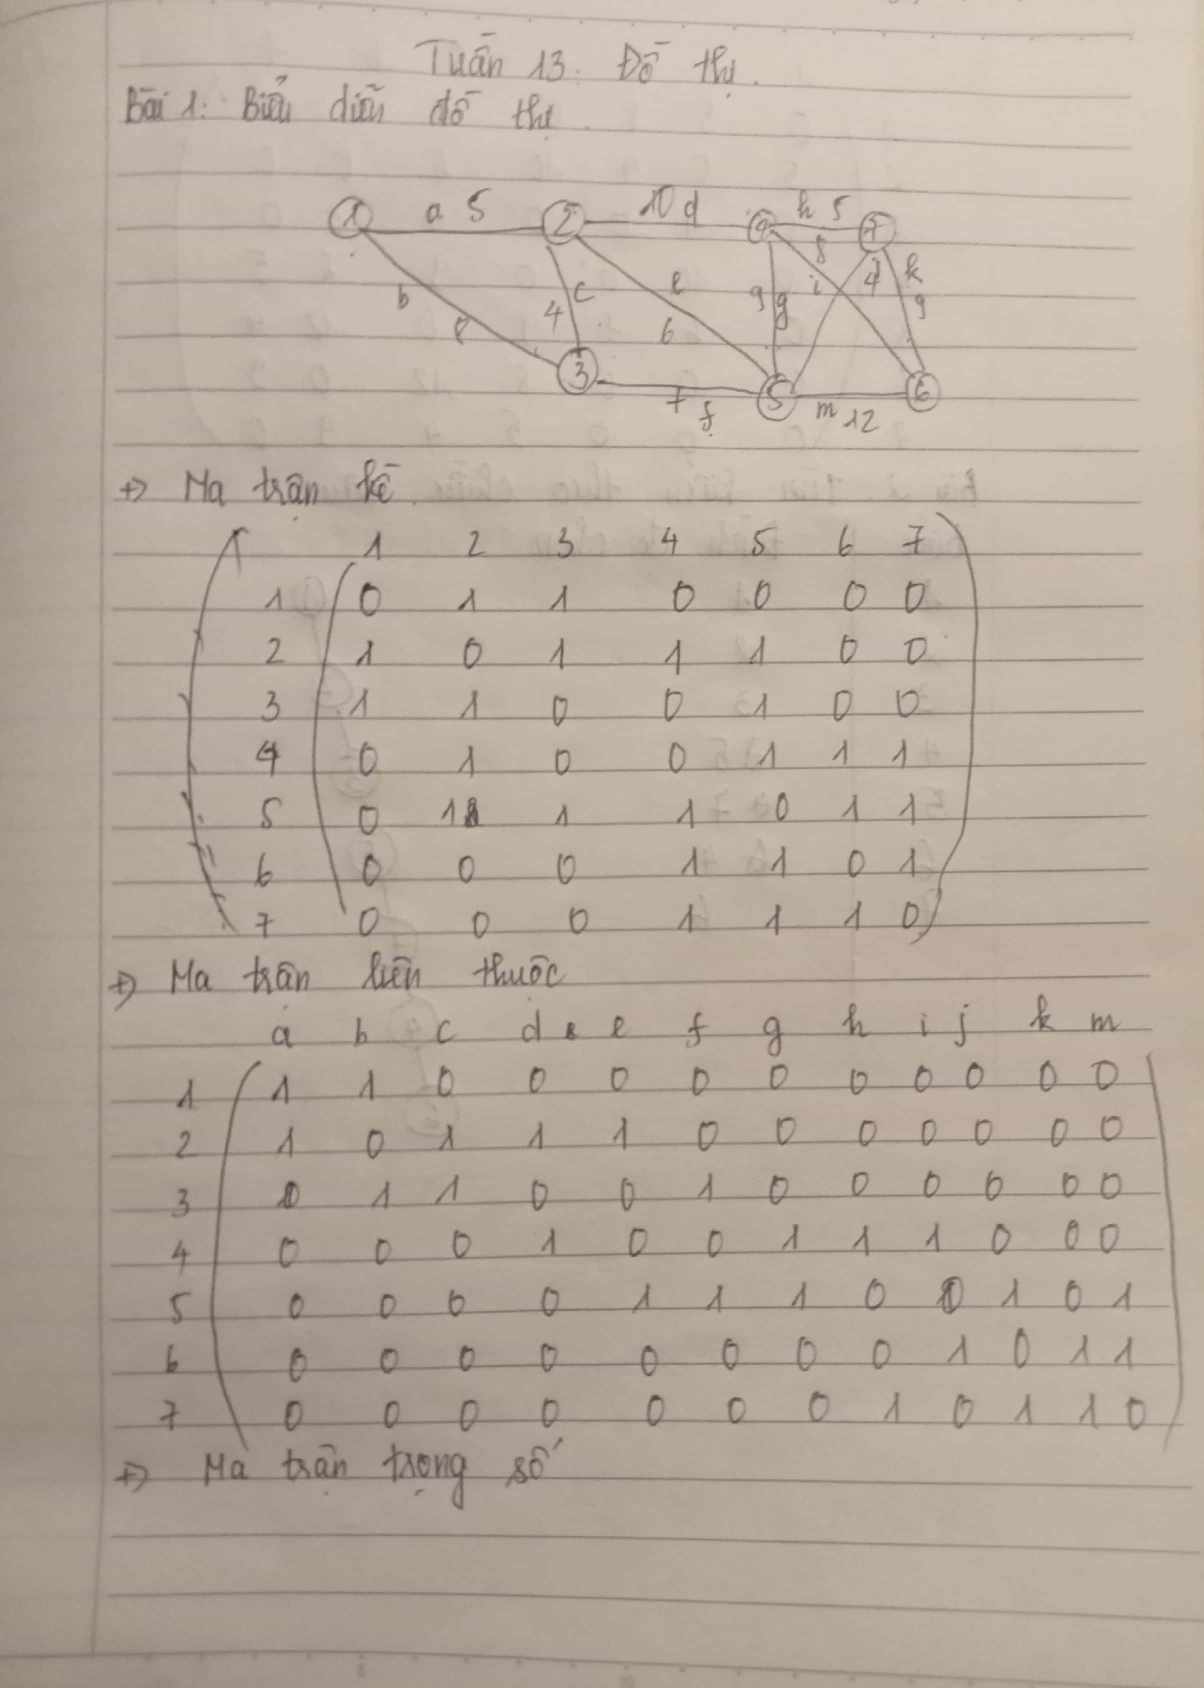 Tuần 13. Đồ thị.
Bài 1: Biểu diễn đồ thị.
1 a 5 2 10 d 4 h 5 7
8 i j 4 k 9
b 8 4 c e 6 9 g
3 7 f 5 m 12 6
+> Ma trận kề.
1 2 3 4 5 6 7
1 0 1 1 0 0 0 0
2 1 0 1 1 1 0 0
3 1 1 0 0 1 0 0
4 0 1 0 0 1 1 1
5 0 1 1 1 0 1 1
6 0 0 0 1 1 0 1
7 0 0 0 1 1 1 0
+> Ma trận liên thuộc
a b c d e f g h i j k m
1 1 1 0 0 0 0 0 0 0 0 0 0
2 1 0 1 1 1 0 0 0 0 0 0 0
3 0 1 1 0 0 1 0 0 0 0 0 0
4 0 0 0 1 0 0 1 1 1 0 0 0
5 0 0 0 0 1 1 1 0 0 1 0 1
6 0 0 0 0 0 0 0 0 1 0 1 1
7 0 0 0 0 0 0 0 1 0 1 1 0
+> Ma trận trọng số